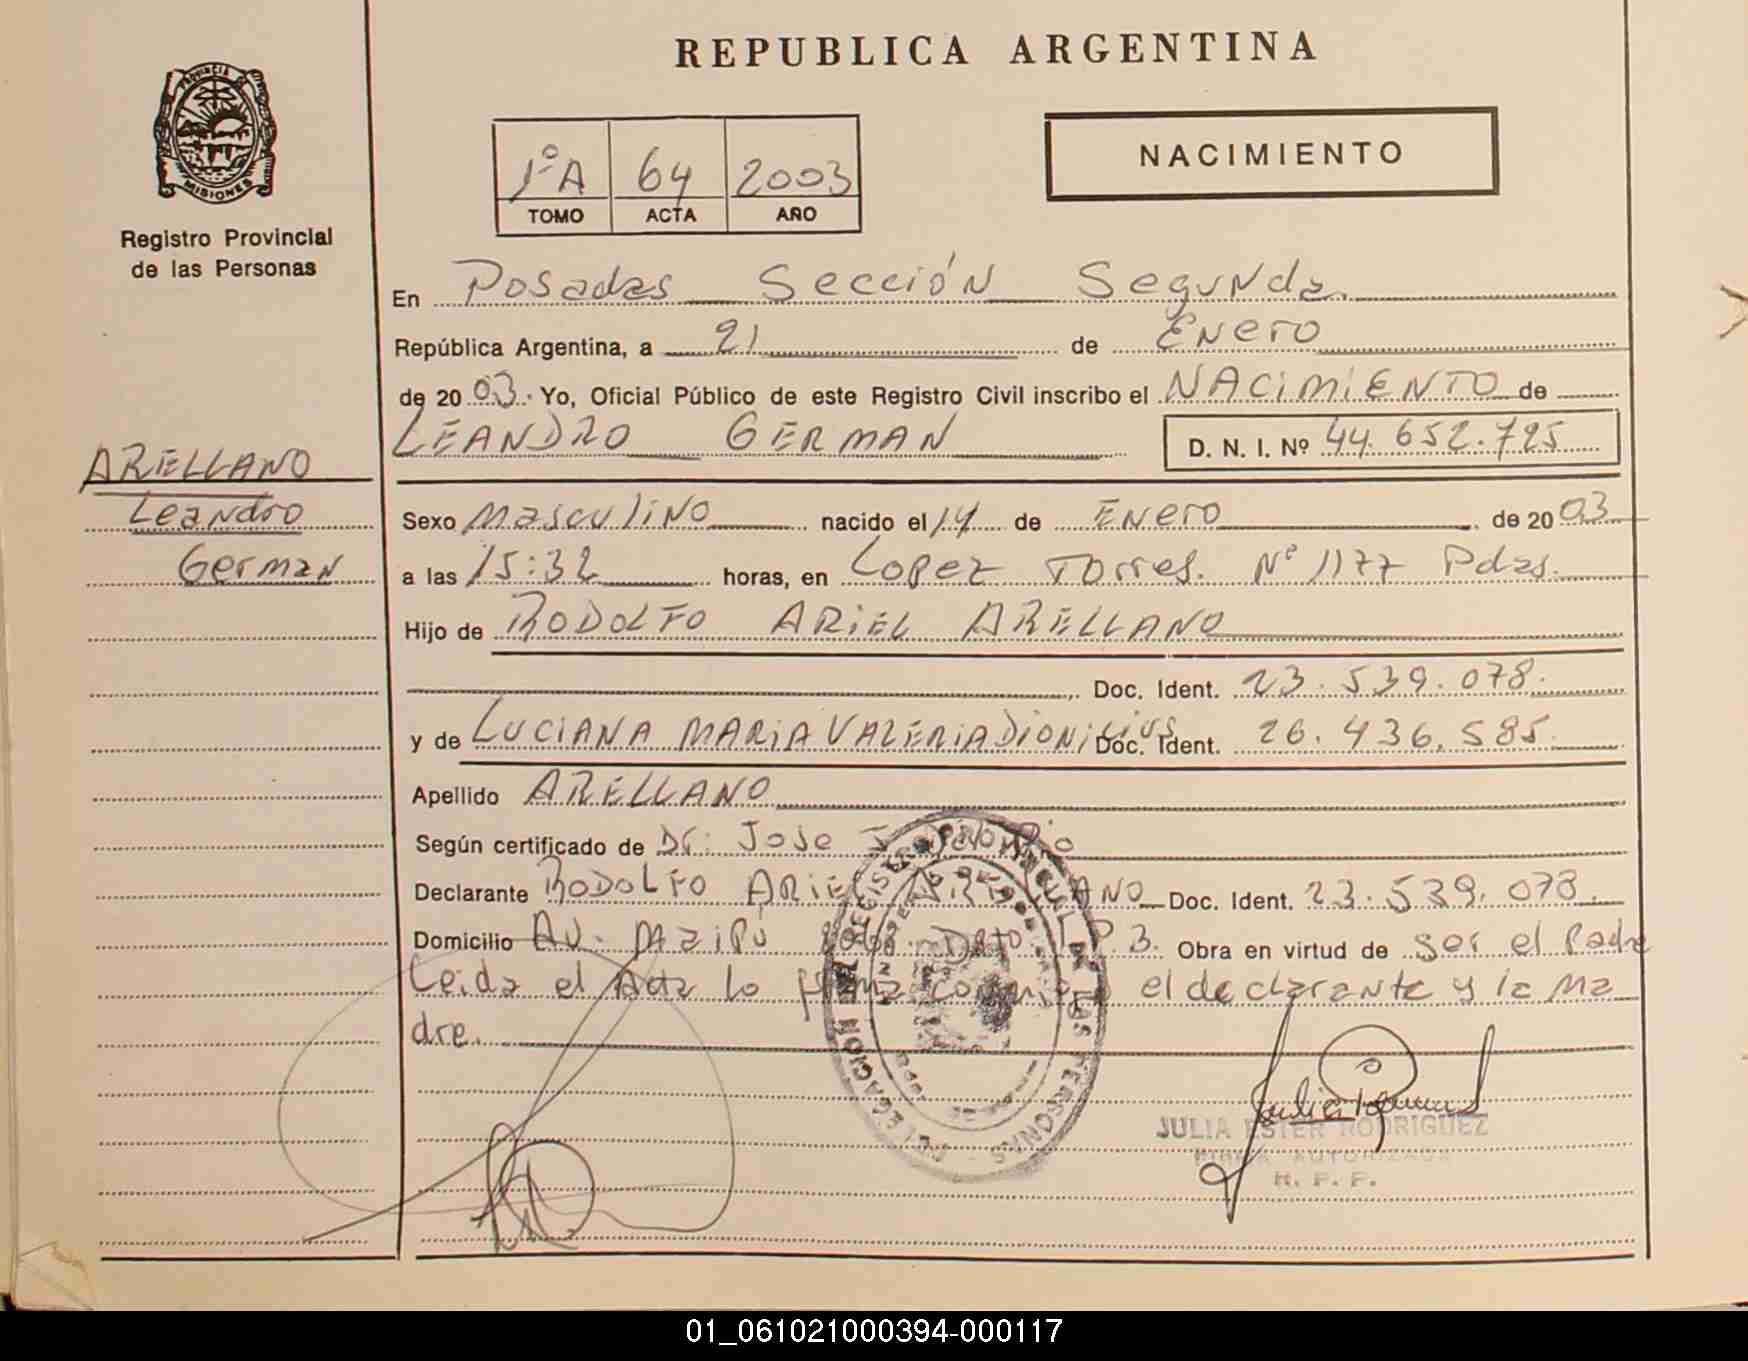 REPUBLICA ARGENTINA
PROVINCIA DE MISIONES
Registro Provincial
de las Personas
1ºA 64 2003
TOMO ACTA AÑO
NACIMIENTO
En Posadas Sección Segunda.
República Argentina, a 21 de Enero
de 2003. Yo, Oficial Público de este Registro Civil inscribo el NACIMIENTO de
LEANDRO GERMAN D. N. I. Nº 44.652.725
ARELLANO
Leandro
German
Sexo Masculino nacido el 14 de ENERO de 2003
a las 15:32 horas, en Lopez Torres. Nº 1177 Pdas.
Hijo de RODOLFO ARIEL ARELLANO
Doc. Ident. 23.539.078.
y de LUCIANA MARIA VALERIA Doc. Ident. 26.436.585.
Apellido ARELLANO
Según certificado de Dr: Jose
Declarante RODOLFO ARIEL ARELLANO Doc. Ident. 23.539.078.
Domicilio AV. Maipú Dpto 3. Obra en virtud de ser el Padre
Leida el Acta lo firma el declarante y la ma
dre.
JULIA ESTER RODRIGUEZ
FIRMA AUTORIZADA
R. P. P.
01_061021000394-000117